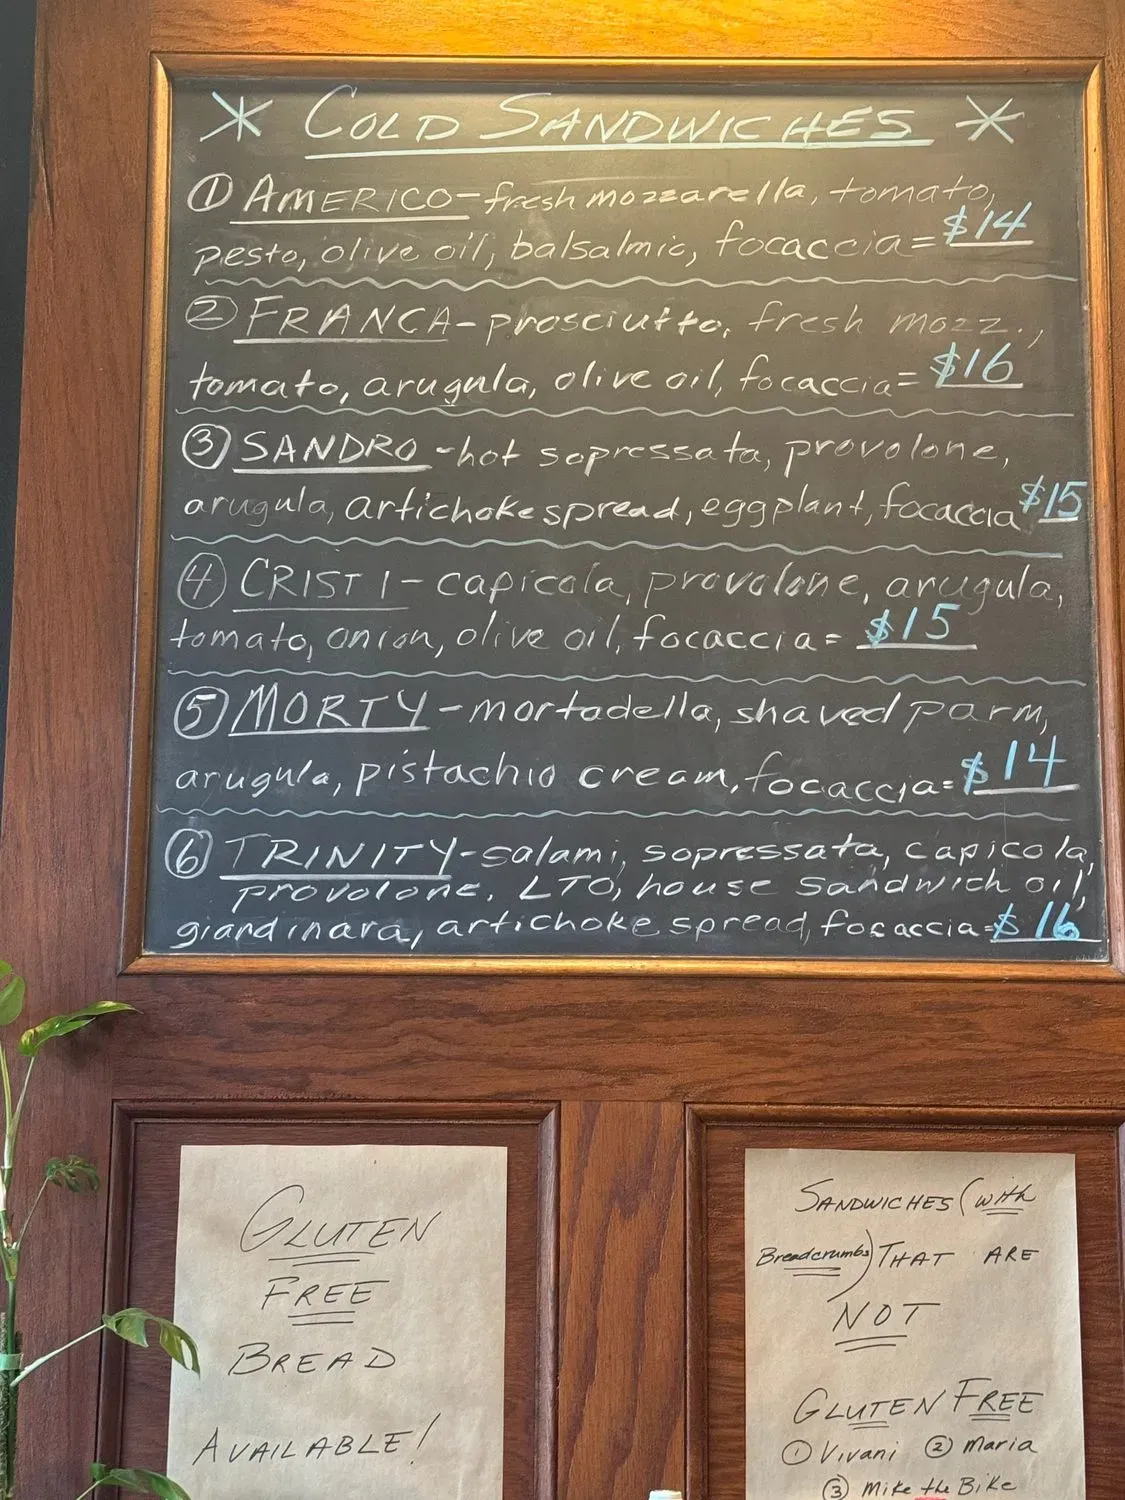 * COLD SANDWICHES *
① AMERICO - fresh mozzarella, tomato,
pesto, olive oil, balsalmic, focaccia = $14
② FRANCA - prosciutto, fresh mozz.,
tomato, arugula, olive oil, focaccia = $16
③ SANDRO - hot sopressata, provolone,
arugula, artichoke spread, eggplant, focaccia $15
④ CRISTI - capicola, provolone, arugula,
tomato, onion, olive oil, focaccia = $15
⑤ MORTY - mortadella, shaved parm,
arugula, pistachio cream, focaccia = $14
⑥ TRINITY - salami, sopressata, capicola,
provolone, LTO, house sandwich oil,
giardinara, artichoke spread, focaccia = $16
GLUTEN
FREE
BREAD
AVAILABLE!
SANDWICHES (with
Breadcrumbs) THAT ARE
NOT
GLUTEN FREE
① Vivani ② Maria
③ Mike the Bike